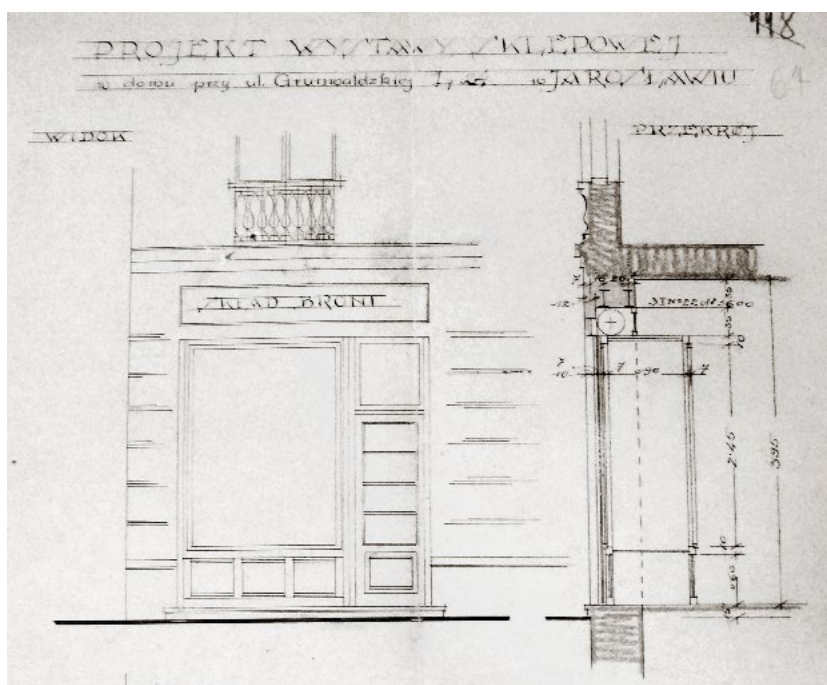 118
64
PROJEKT WYSTAWY SKLEPOWEJ
w domu przy ul. Grunwaldzkiej w JAROSŁAWIU
WIDOK
PRZEKRÓJ
SKŁAD BRONI
7
20
12
7
10
7
0·90
7
10
2·45
3·95
10
0·60